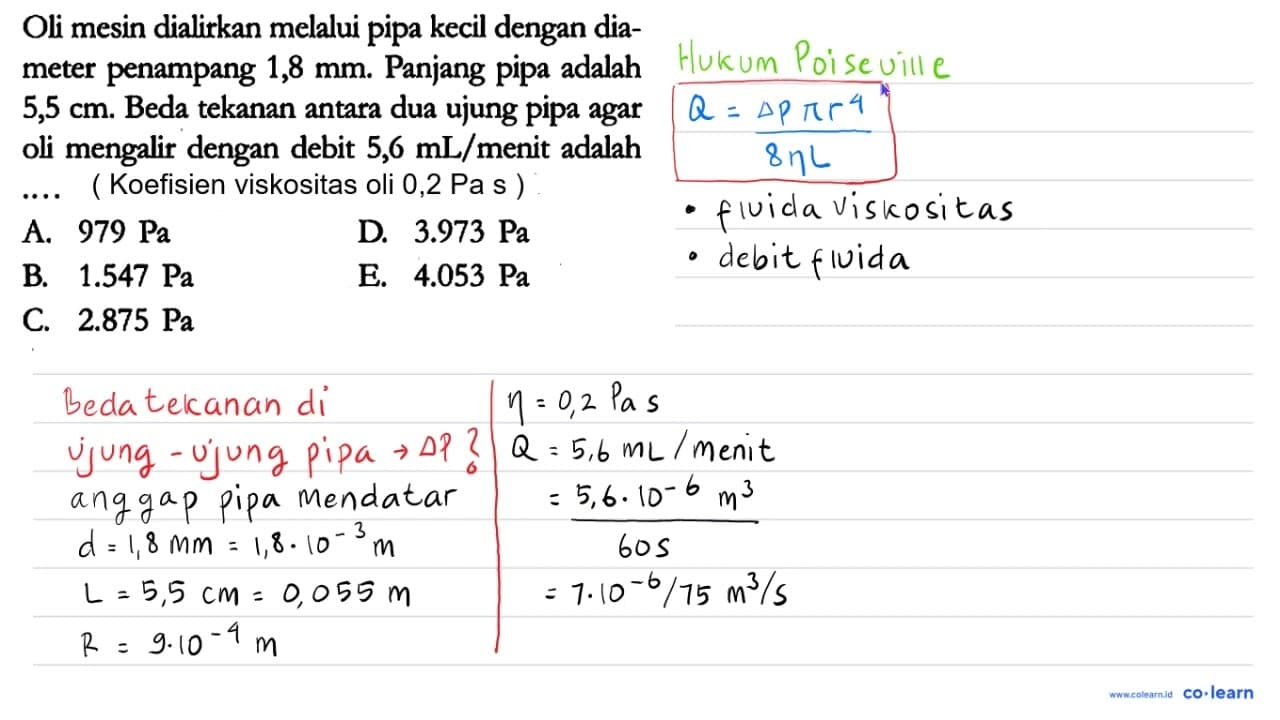 Oli mesin dialirkan melalui pipa kecil dengan dia-
meter penampang 1,8 mm. Panjang pipa adalah
5,5 cm. Beda tekanan antara dua ujung pipa agar
oli mengalir dengan debit 5,6 mL/menit adalah
.... ( Koefisien viskositas oli 0,2 Pa s )
A. 979 Pa D. 3.973 Pa
B. 1.547 Pa E. 4.053 Pa
C. 2.875 Pa
Hukum Poiseuille
Q = Δp π r⁴ / 8ηL
• fluida viskositas
• debit fluida
Beda tekanan di
ujung - ujung pipa → ΔP?
anggap pipa mendatar
d = 1,8 mm = 1,8 · 10⁻³ m
L = 5,5 cm = 0,055 m
R = 9·10⁻⁴ m
η = 0,2 Pa s
Q = 5,6 mL / menit
= 5,6 · 10⁻⁶ m³
60 s
= 7·10⁻⁶/75 m³/s
www.colearn.id co·learn